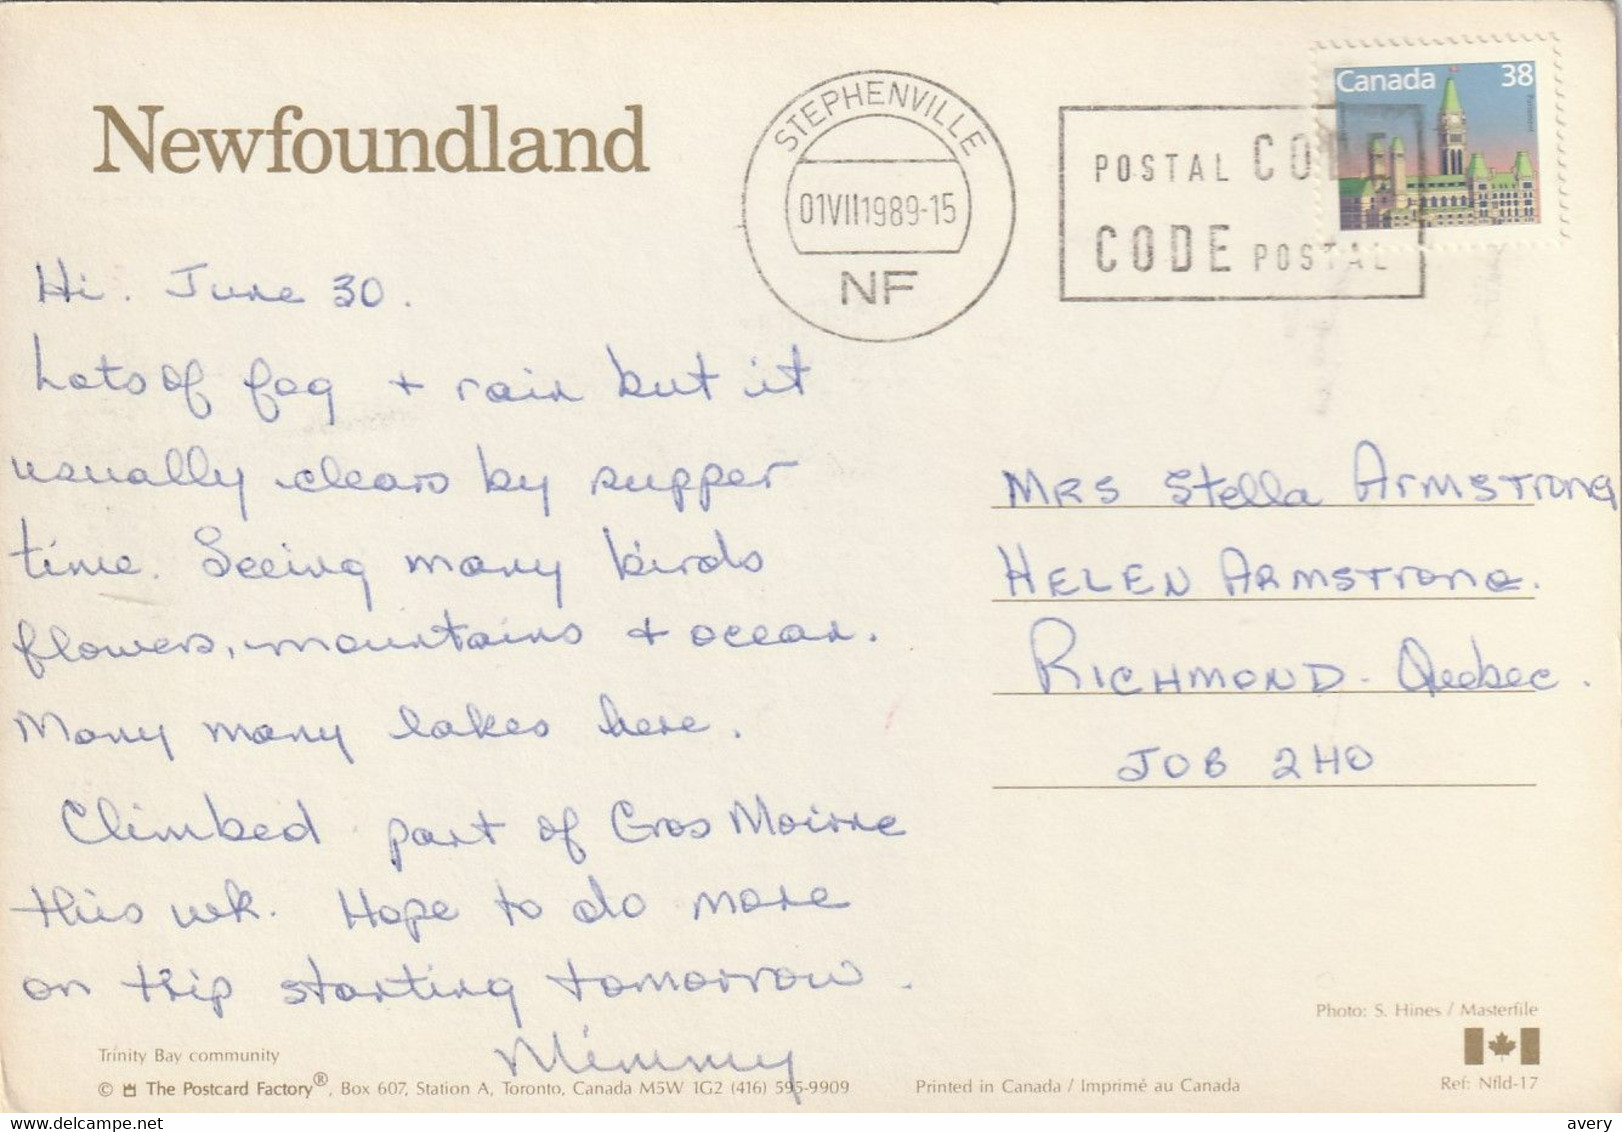 Newfoundland
STEPHENVILLE
01VII1989-15
NF
POSTAL CODE
CODE POSTAL
Canada 38
Hi. June 30.
Lots of fog + rain but it
usually clears by supper
time. Seeing many birds
flowers, mountains + ocean.
Many many lakes here.
Climbed part of Gros Moirne
this wk. Hope to do more
on trip starting tomorrow.
Mimmy
Mrs Stella Armstrong
HELEN ARMSTRONG.
RICHMOND. Quebec.
JOB 2HO
Photo: S. Hines / Masterfile
Trinity Bay community
© The Postcard Factory®, Box 607, Station A, Toronto, Canada M5W 1G2 (416) 595-9909
Printed in Canada / Imprimé au Canada
Ref: Nfld-17
www.delcampe.net
avery